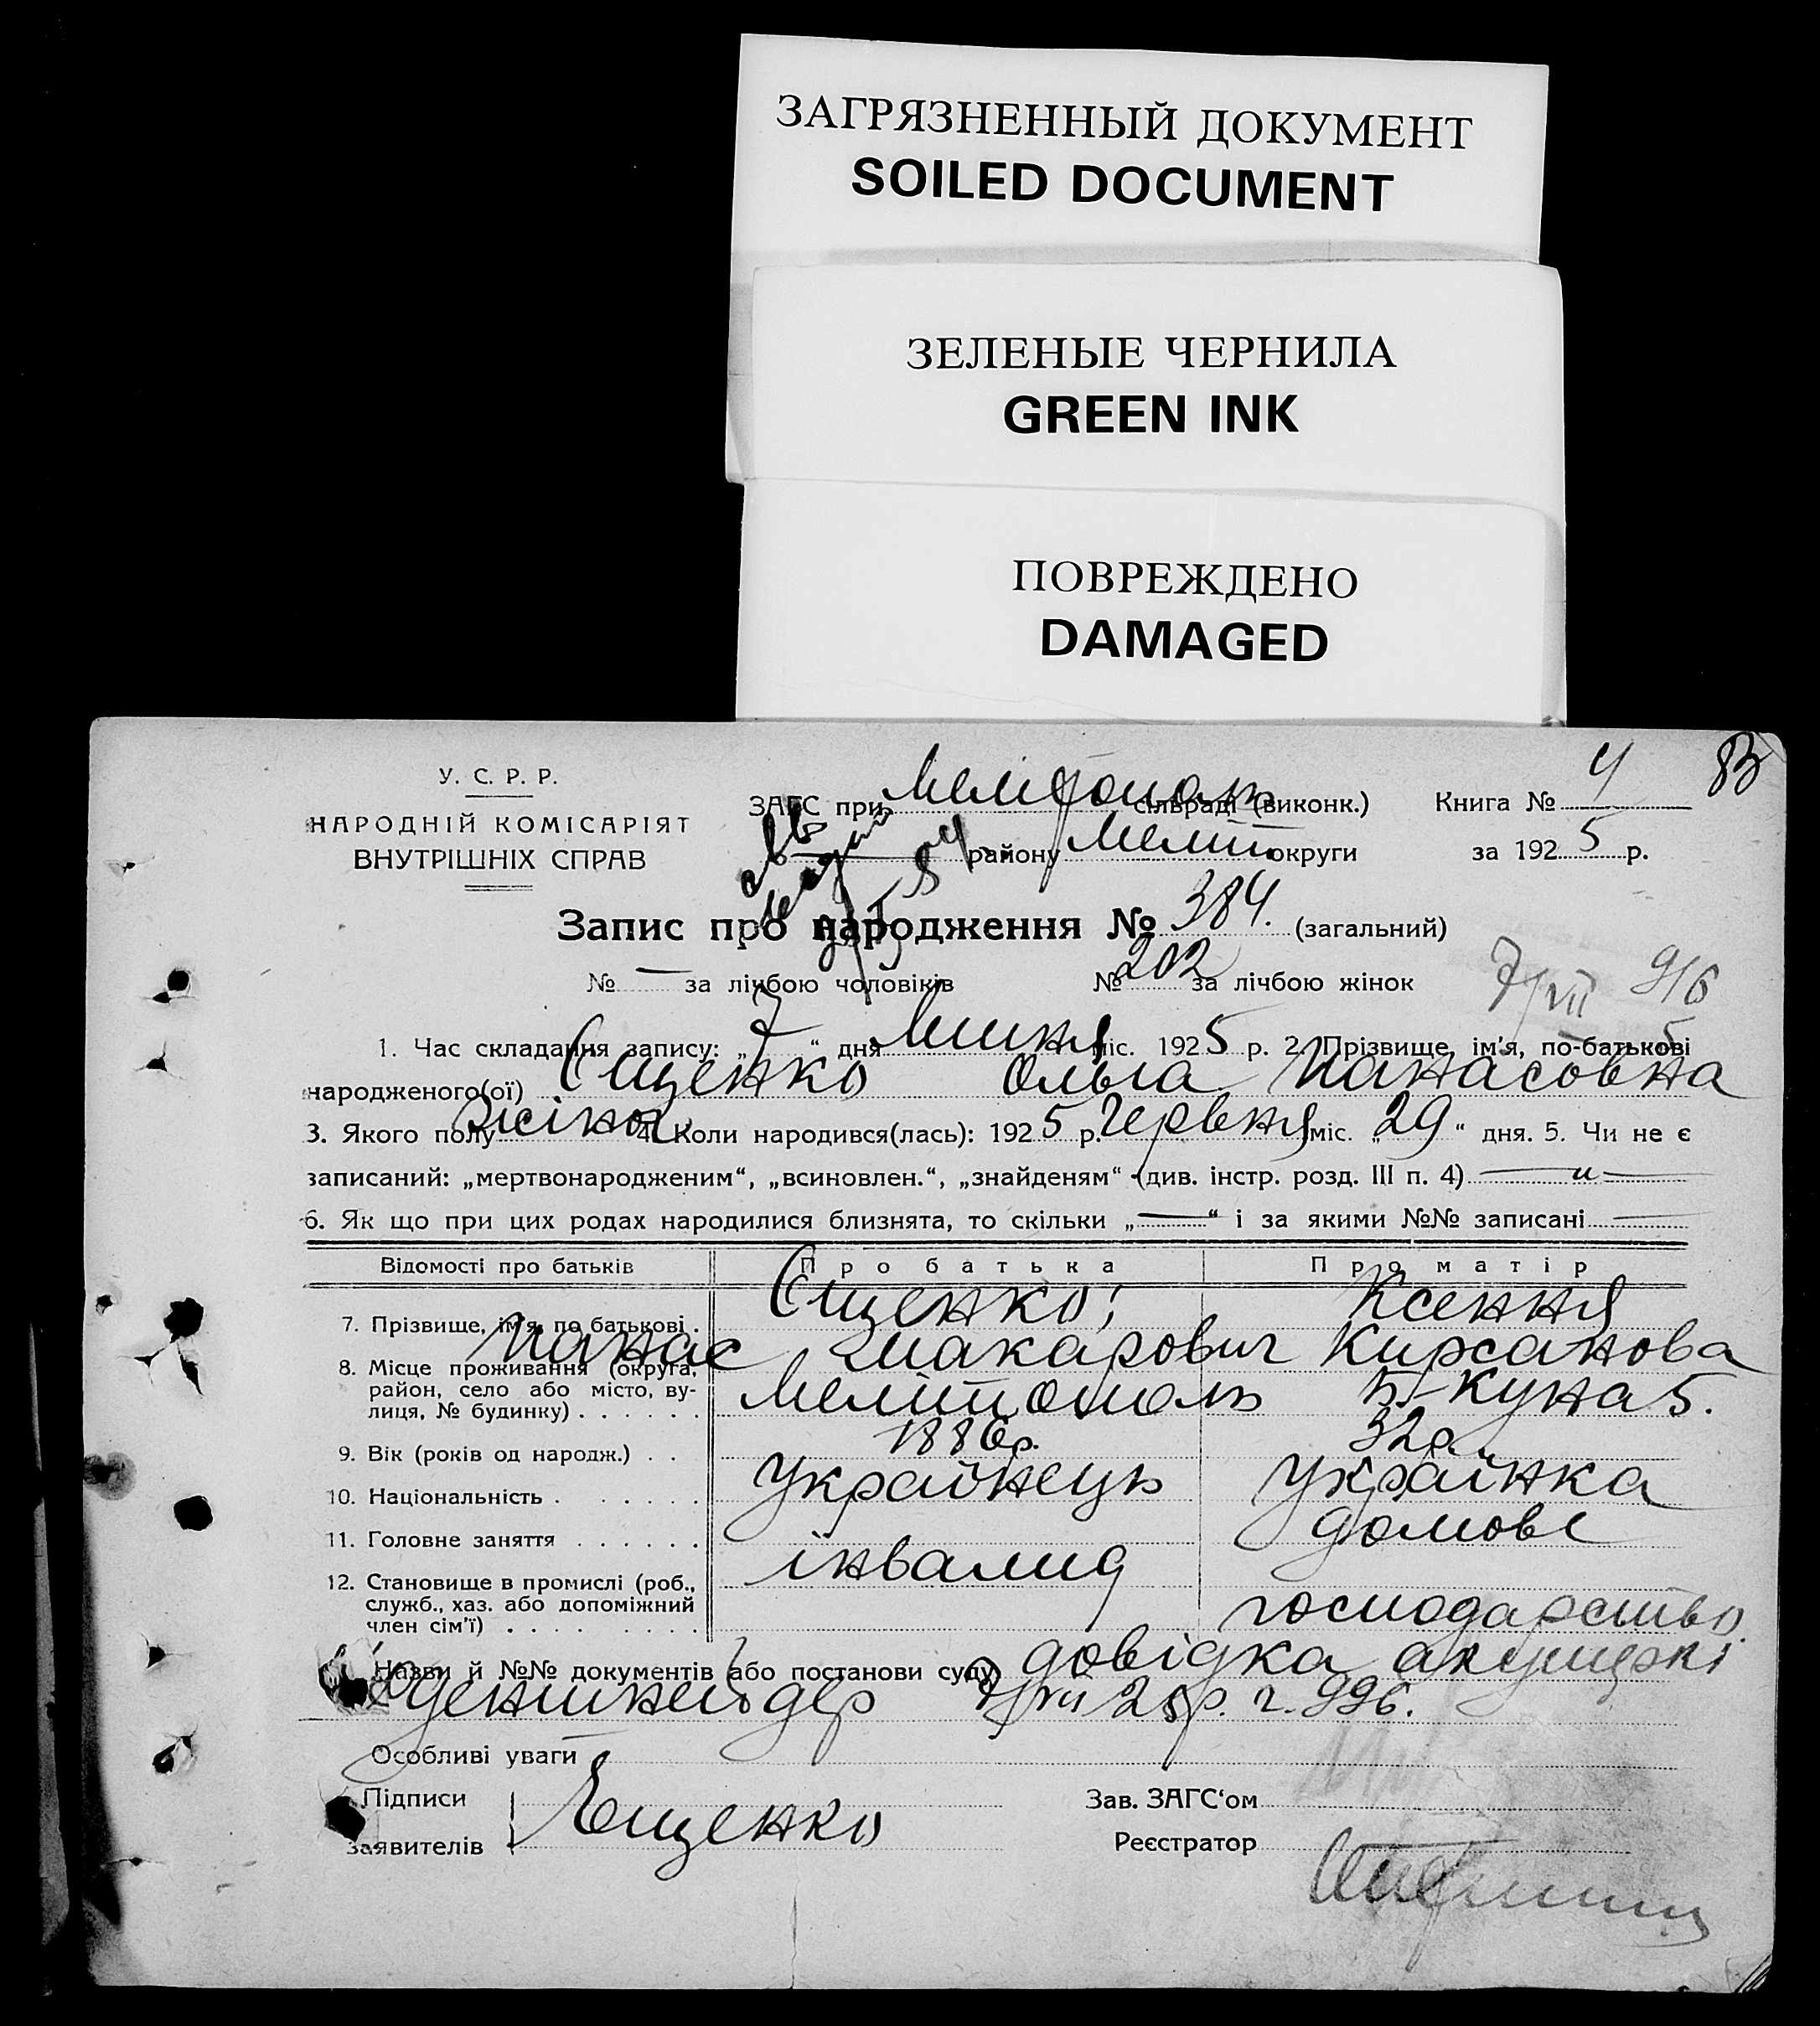 ЗАГРЯЗНЕННЫЙ ДОКУМЕНТ
SOILED DOCUMENT
ЗЕЛЕНЫЕ ЧЕРНИЛА
GREEN INK
ПОВРЕЖДЕНО
DAMAGED
У. С. Р. Р.
НАРОДНІЙ КОМІСАРІЯТ
ВНУТРІШНІХ СПРАВ
83
ЗАГС при Мелітополь сільраді (виконк.) Книга № 4
району Меліт округи за 1925 р.
Запис про народження № 384. (загальний)
№ — за лічбою чоловіків № 202 за лічбою жінок
7/VII 9/6
1. Час складання запису: „7“ дня Липня міс. 1925 р. 2. Прізвище, ім'я, по-батькові
народженого(ої) Єщенко Ольга Панасовна
3. Якого полу жіноч 4. Коли народився(лась): 1925 р. Червня міс. „29“ дня. 5. Чи не є
записаний: „мертвонародженим“, „всиновлен.“, „знайденям“ (див. інстр. розд. III п. 4) — „ —
6. Як що при цих родах народилися близнята, то скільки „—“ і за якими №№ записані —
Відомості про батьків Про батька Про матір
7. Прізвище, ім'я, по батькові . Єщенко; Ксенія
Панас Макарович Кирсанова
8. Місце проживання (округа, район, село або місто, ву-
лиця, № будинку) . . . . . . Мелітополь Б-Куна 5.
9. Вік (років од народж.) . . 1886р. 32р.
10. Національність . . . . . . Українець Українка
11. Головне заняття . . . . . . інвалид домове
12. Становище в промислі (роб.,
служб., хаз. або допоміжний
член сім'ї) . . . . . . . . господарство
Назви й №№ документів або постанови суду довідка акушерки
7/VII 25р. г. 996.
Особливі уваги
Підписи
заявителів Єщенко
Зав. ЗАГС'ом
Реєстратор